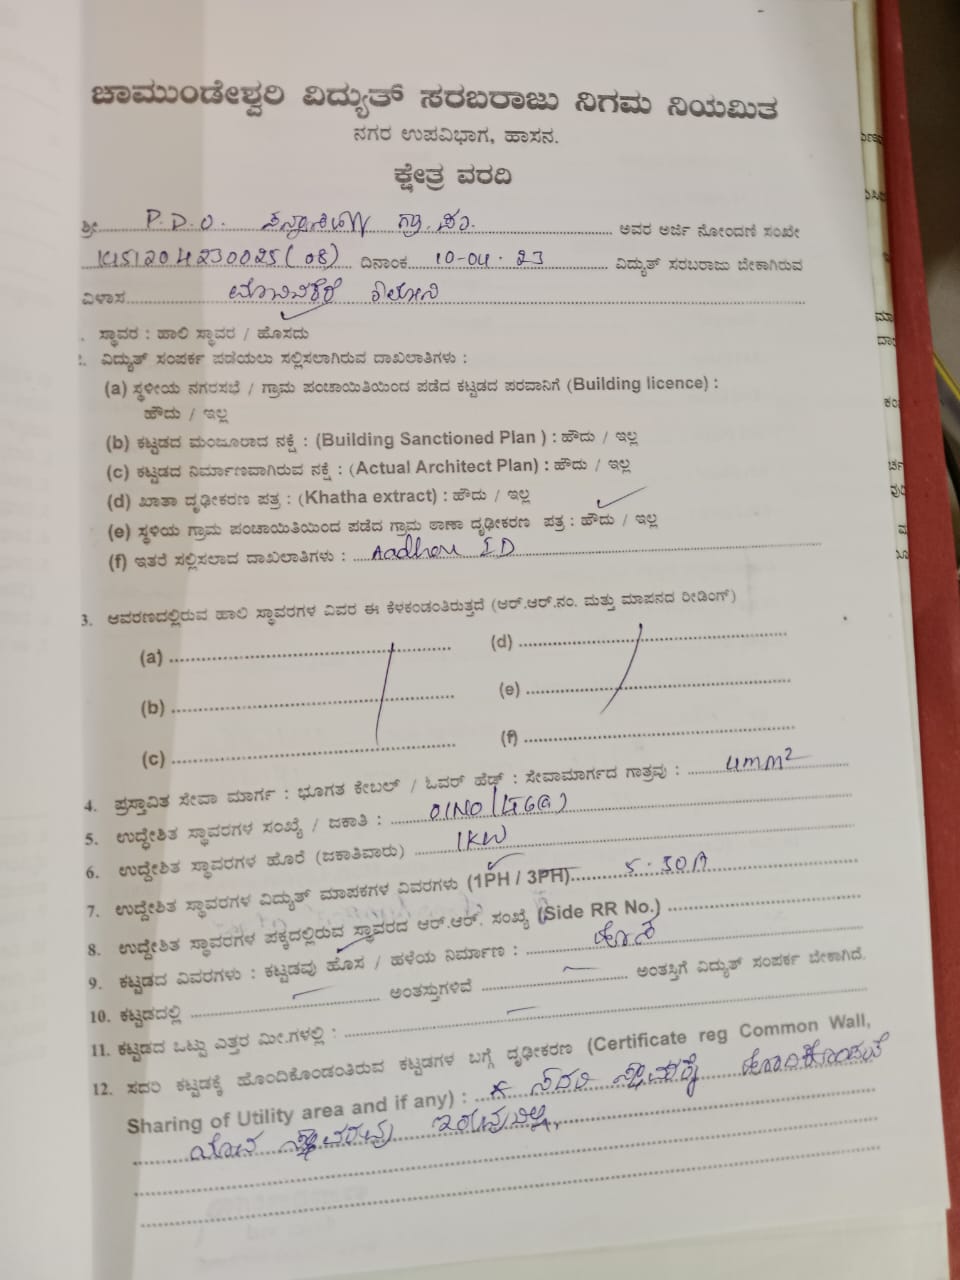 ಚಾಮುಂಡೇಶ್ವರಿ ವಿದ್ಯುತ್ ಸರಬರಾಜು ನಿಗಮ ನಿಯಮಿತ
ನಗರ ಉಪವಿಭಾಗ, ಹಾಸನ.
ಕ್ಷೇತ್ರ ವರದಿ
ಶ್ರೀ P.D.O. ಗ್ರಾ.ಪಂ. ಅವರ ಅರ್ಜಿ ನೋಂದಣಿ ಸಂಖೇ
(08) ದಿನಾಂಕ 10-04-23 ವಿದ್ಯುತ್ ಸರಬರಾಜು ಬೇಕಾಗಿರುವ
ವಿಳಾಸ
. ಸ್ಥಾವರ : ಹಾಲಿ ಸ್ಥಾವರ / ಹೊಸದು
. ವಿದ್ಯುತ್ ಸಂಪರ್ಕ ಪಡೆಯಲು ಸಲ್ಲಿಸಲಾಗಿರುವ ದಾಖಲಾತಿಗಳು :
(a) ಸ್ಥಳೀಯ ನಗರಸಭೆ / ಗ್ರಾಮ ಪಂಚಾಯಿತಿಯಿಂದ ಪಡೆದ ಕಟ್ಟಡದ ಪರವಾನಿಗೆ (Building licence) :
ಹೌದು / ಇಲ್ಲ
(b) ಕಟ್ಟಡದ ಮಂಜೂರಾದ ನಕ್ಷೆ : (Building Sanctioned Plan ) : ಹೌದು / ಇಲ್ಲ
(c) ಕಟ್ಟಡದ ನಿರ್ಮಾಣವಾಗಿರುವ ನಕ್ಷೆ : (Actual Architect Plan) : ಹೌದು / ಇಲ್ಲ
(d) ಖಾತಾ ದೃಢೀಕರಣ ಪತ್ರ : (Khatha extract) : ಹೌದು / ಇಲ್ಲ
(e) ಸ್ಥಳಿಯ ಗ್ರಾಮ ಪಂಚಾಯಿತಿಯಿಂದ ಪಡೆದ ಗ್ರಾಮ ಠಾಣಾ ದೃಢೀಕರಣ ಪತ್ರ : ಹೌದು / ಇಲ್ಲ
(f) ಇತರೆ ಸಲ್ಲಿಸಲಾದ ದಾಖಲಾತಿಗಳು : Aadhar ID
3. ಆವರಣದಲ್ಲಿರುವ ಹಾಲಿ ಸ್ಥಾವರಗಳ ವಿವರ ಈ ಕೆಳಕಂಡಂತಿರುತ್ತದೆ (ಆರ್.ಆರ್.ನಂ. ಮತ್ತು ಮಾಪನದ ರೀಡಿಂಗ್)
(a) (d)
(b) (e)
(c) (f)
4. ಪ್ರಸ್ತಾವಿತ ಸೇವಾ ಮಾರ್ಗ : ಭೂಗತ ಕೇಬಲ್ / ಓವರ್ ಹೆಡ್ : ಸೇವಾಮಾರ್ಗದ ಗಾತ್ರವು : 4mm2
5. ಉದ್ಧೇಶಿತ ಸ್ಥಾವರಗಳ ಸಂಖ್ಯೆ / ಜಕಾತಿ :
6. ಉದ್ದೇಶಿತ ಸ್ಥಾವರಗಳ ಹೊರೆ (ಜಕಾತಿವಾರು) 1KW
7. ಉದ್ದೇಶಿತ ಸ್ಥಾವರಗಳ ವಿದ್ಯುತ್ ಮಾಪಕಗಳ ವಿವರಗಳು (1PH / 3PH) 5-30A
8. ಉದ್ದೇಶಿತ ಸ್ಥಾವರಗಳ ಪಕ್ಕದಲ್ಲಿರುವ ಸ್ಥಾವರದ ಆರ್.ಆರ್. ಸಂಖ್ಯೆ (Side RR No.)
9. ಕಟ್ಟಡದ ವಿವರಗಳು : ಕಟ್ಟಡವು ಹೊಸ / ಹಳೆಯ ನಿರ್ಮಾಣ : ಹೊಸ
10. ಕಟ್ಟಡದಲ್ಲಿ ಅಂತಸ್ತುಗಳಿದೆ ಅಂತಸ್ತಿಗೆ ವಿದ್ಯುತ್ ಸಂಪರ್ಕ ಬೇಕಾಗಿದೆ.
11. ಕಟ್ಟಡದ ಒಟ್ಟು ಎತ್ತರ ಮೀ.ಗಳಲ್ಲಿ :
12. ಸದರಿ ಕಟ್ಟಡಕ್ಕೆ ಹೊಂದಿಕೊಂಡಂತಿರುವ ಕಟ್ಟಡಗಳ ಬಗ್ಗೆ ದೃಢೀಕರಣ (Certificate reg Common Wall,
Sharing of Utility area and if any) : ಸದರಿ ಸ್ಥಾವರಕ್ಕೆ ಹೊಂದಿಕೊಂಡಂತೆ
ಯಾವ ಸ್ಥಾವರವು ಇರುವುದಿಲ್ಲ.